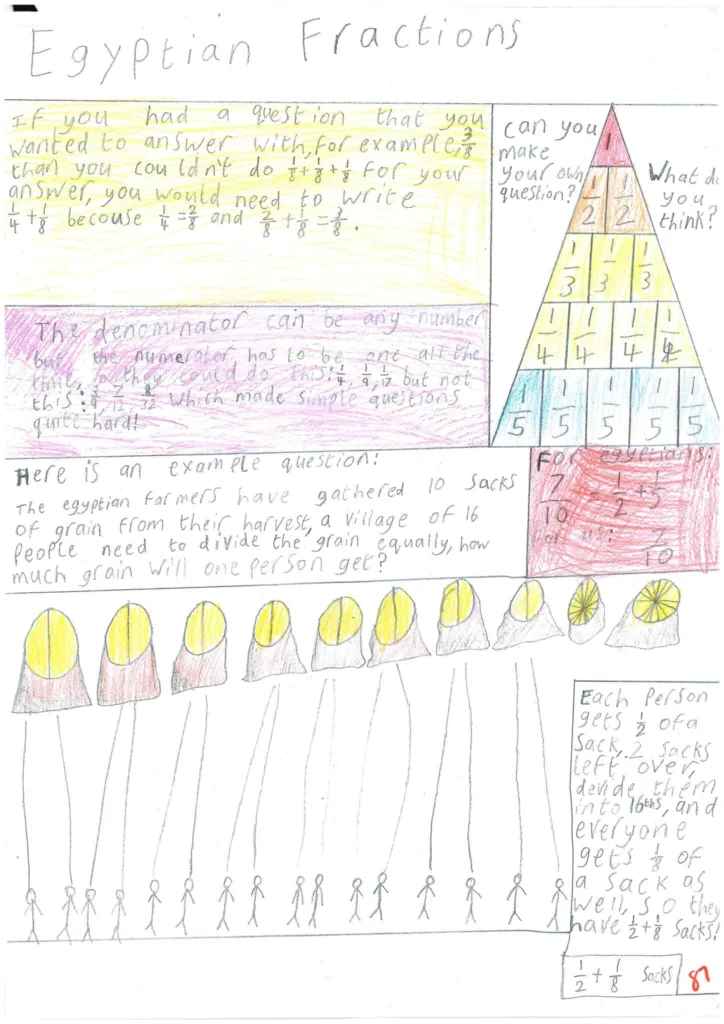 Egyptian Fractions
If you had a question that you
wanted to answer with, for example, 3/8
than you couldn't do 1/8 + 1/8 + 1/8 for your
answer, you would need to write
1/4 + 1/8 becouse 1/4 = 2/8 and 2/8 + 1/8 = 3/8.
can you
make
your own
question?
What do
you
think?
1
1/2 1/2
1/3 1/3 1/3
1/4 1/4 1/4 1/4
1/5 1/5 1/5 1/5 1/5
The denominator can be any number
but the numerator has to be one all the
time, so they could do this: 1/4, 1/9, 1/17 but not
this: 7/12 8/32 which made simple questions
quite hard!
Here is an example question!
The egyptian farmers have gathered 10 sacks
of grain from their harvest, a village of 16
people need to divide the grain equally, how
much grain will one person get?
For egyptians:
7/10 = 1/2 + 1/5
For us: 7/10
Each Person
gets 1/2 of a
sack, 2 sacks
left over,
devide them
into 16ths, and
everyone
gets 1/8 of
a sack as
well, so they
have 1/2 + 1/8 sacks!
1/2 + 1/8 sacks